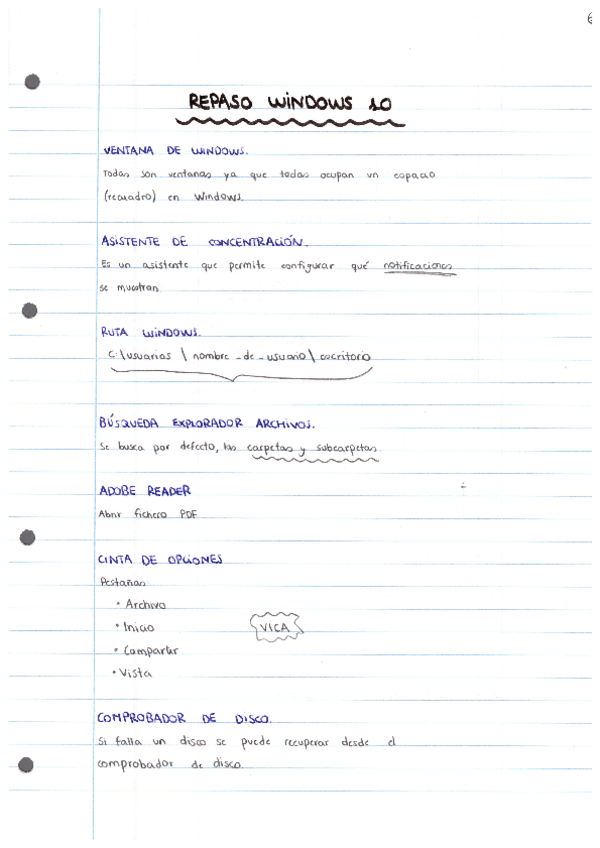 REPASO WINDOWS 10
VENTANA DE WINDOWS.
Todas son ventanas ya que todas ocupan un espacio
(recuadro) en Windows.
ASISTENTE DE CONCENTRACIÓN.
Es un asistente que permite configurar qué notificaciones
se muestran.
RUTA WINDOWS.
C:\usuarios \ nombre_de_usuario\ escritorio
BÚSQUEDA EXPLORADOR ARCHIVOS.
Se busca por defecto, las carpetas y subcarpetas.
ADOBE READER
Abrir fichero PDF
CINTA DE OPCIONES
Pestañas
• Archivo
• Inicio
VICA
• Compartir
• Vista
COMPROBADOR DE DISCO.
Si falla un disco se puede recuperar desde el
comprobador de disco.